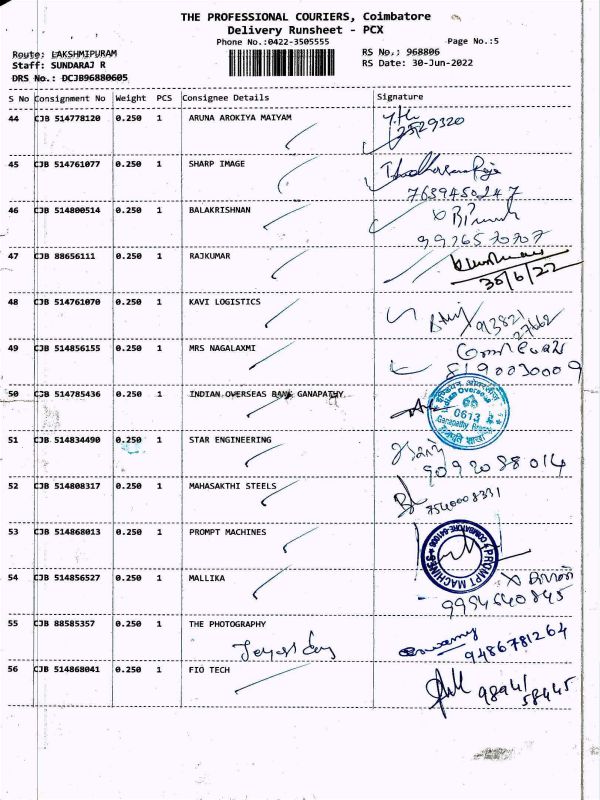 THE PROFESSIONAL COURIERS, Coimbatore
Delivery Runsheet - PCX
Phone No.:0422-3505555
Page No.:5
Route: LAKSHMIPURAM
RS No.: 968806
Staff: SUNDARAJ R
RS Date: 30-Jun-2022
DRS No.: DCJB96880605
S No Consignment No Weight PCS Consignee Details Signature
44 CJB 514778120 0.250 1 ARUNA AROKIYA MAIYAM
45 CJB 514761077 0.250 1 SHARP IMAGE
46 CJB 514800514 0.250 1 BALAKRISHNAN
47 CJB 88656111 0.250 1 RAJKUMAR
30/6/22
48 CJB 514761070 0.250 1 KAVI LOGISTICS
49 CJB 514856155 0.250 1 MRS NAGALAXMI
8190030009
50 CJB 514785436 0.250 1 INDIAN OVERSEAS BANK GANAPATHY
0613
Ganapathy Branch
51 CJB 514834490 0.250 1 STAR ENGINEERING
9092088014
52 CJB 514808317 0.250 1 MAHASAKTHI STEELS
7540008331
53 CJB 514868013 0.250 1 PROMPT MACHINES
PROMPT MACHINES
54 CJB 514856527 0.250 1 MALLIKA
9954640845
55 CJB 88585357 0.250 1 THE PHOTOGRAPHY
9486781264
56 CJB 514868041 0.250 1 FIO TECH
98941
58445